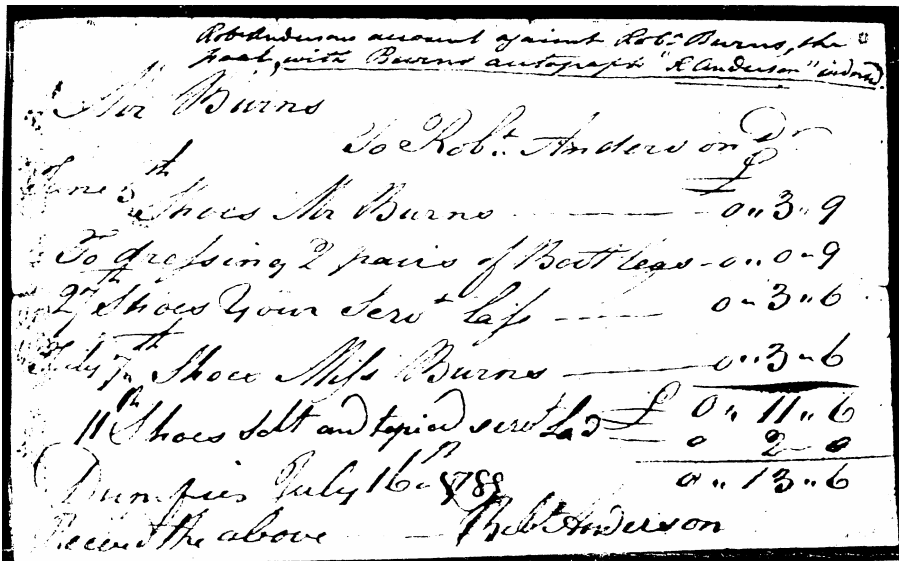 Robt Andersons account against Robt. Burns, the
poet, with Burns autograph "R Anderson" indorsd.
Mr Burns
To Robt. Anderson Dr
£
June 3th Shoes Mr Burns 0 " 3 " 9
To dressing 2 pairs of Boot legs - 0 " 0 " 9
27th Shoes Your Servt lass 0 " 3 " 6
July 7th Shoes Miss Burns 0 " 3 " 6
£ 0 " 11 " 6
11th Shoes solt and tapied servt Lad 0 2 0
0 " 13 " 6
Dumfries July 16th 1789
Received the above Robt Anderson